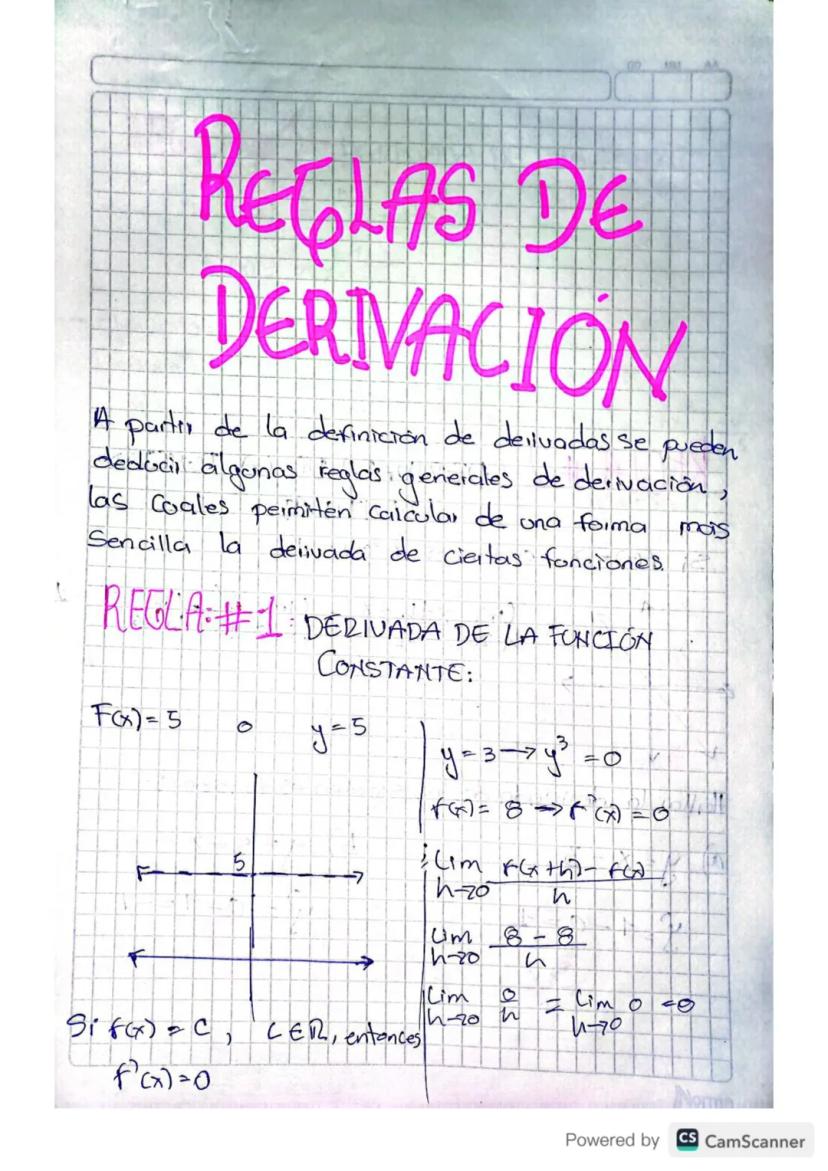 REGLAS DE
DERIVACIÓN
A partir de la definición de derivadas se pueden
deducir algunas reglas generales de derivación,
las cuales permiten calcular de una forma mas
Sencilla la derivada de ciertas funciones.
REGLA: #1: DERIVADA DE LA FUNCIÓN
CONSTANTE:
F(x) = 5 o y = 5
5
Si f(x) = C, C ∈ R, entonces
f'(x) = 0
y = 3 → y³ = 0
f(x) = 8 → f'(x) = 0
Lim f(x+h) - f(x)
h→0 h
Lim 8 - 8
h→0 h
Lim 0 = Lim 0 = 0
h→0 h h→0
Powered by CS CamScanner